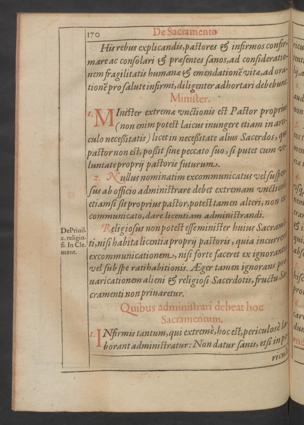 De Sacramento
170
His rebus explicandis, pastores & infirmos confir-
mare ac consolari & presentes sanos, ad consideratio-
nem fragilitatis humanæ & emendationē vitæ, ad ora-
tionē pro salute infirmi, diligenter adhortari debebunt.
Minister.
1. Minister extremæ vnctionis est Pastor proprius
(non enim potest laicus inungere etiam in arti-
culo necessitatis) licet in necessitate alius Sacerdos, qui
pastor non est, possit sine peccato suo, si putet eum vo-
luntate proprij pastoris futurum.
2. Nullus nominatim excommunicatus vel suspen-
sus ab officio administrare debet extremam vnctionē
etiamsi sit proprius pastor, potest tamen alteri, non ex-
communicato, dare licentiam administrandi.
Religiosus non potest esse minister huius Sacramē-
ti, nisi habita licentia proprij pastoris, quia incurreret
excommunicationem, nisi forte faceret ex ignorantia
vel sub spe ratihabitionis. Æger tamen ignorans præ-
uaricationem alieni & religiosi Sacerdotis, fructu Sa-
cramenti non priuaretur.
De Priuil.
religio-
si. In Cle-
ment.
Quibus administrari debeat hoc
Sacramentum.
1. INfirmis tantum, qui extremè, hoc est, periculosè la-
borant administratur: Non datur sanis, etsi in pe-